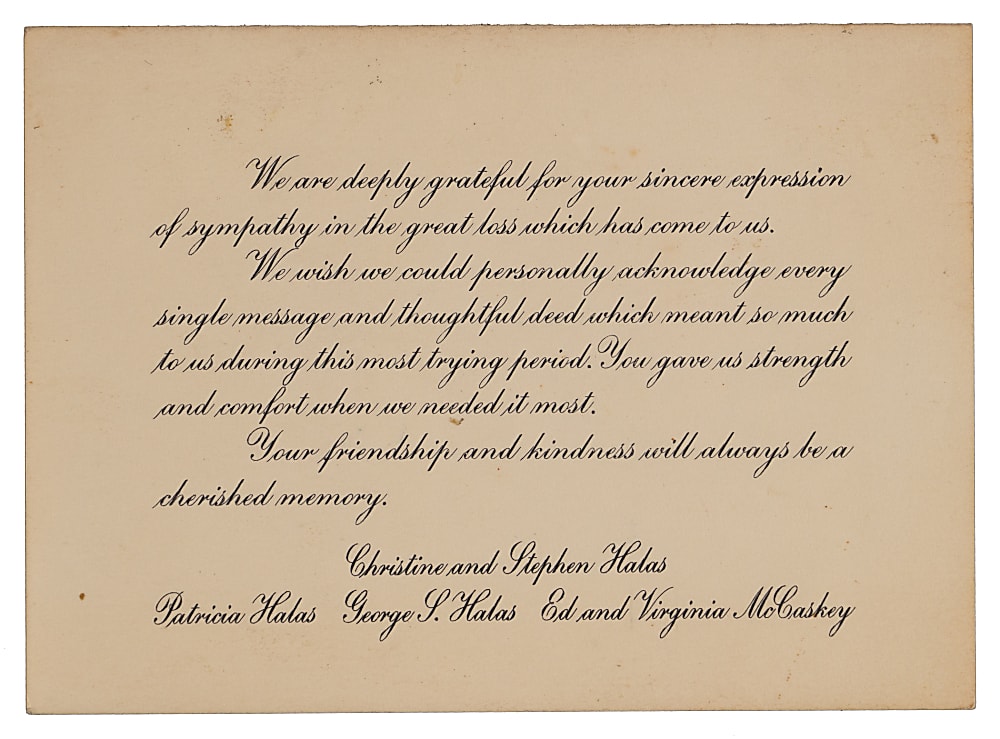 We are deeply grateful for your sincere expression
of sympathy in the great loss which has come to us.
We wish we could personally acknowledge every
single message and thoughtful deed which meant so much
to us during this most trying period. You gave us strength
and comfort when we needed it most.
Your friendship and kindness will always be a
cherished memory.
Christine and Stephen Halas
Patricia Halas George S. Halas Ed and Virginia McCaskey